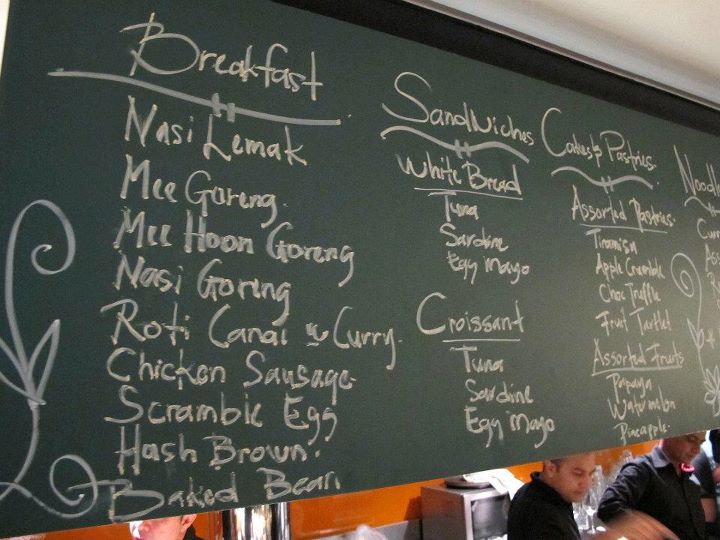 Breakfast
Nasi Lemak
Mee Goreng.
Mee Hoon Goreng
Nasi Goreng
Roti Canai w Curry.
Chicken Sausage.
Scramble Egg
Hash Brown.
Baked Bean
Sandwiches
White Bread
Tuna
Sardine
Egg Mayo
Croissant
Tuna
Sardine
Egg Mayo
Cakes & Pastries.
Assorted Pastries.
Tiramisu
Apple Crumble
Choc Truffle
Fruit Tartlet
Assorted Fruits
Papaya
Watermelon
Pineapple.